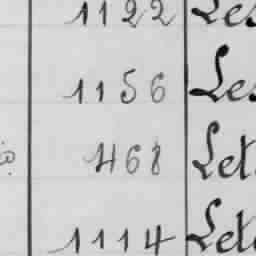 1122 Les
1156 Les
468 Let
1114 Let